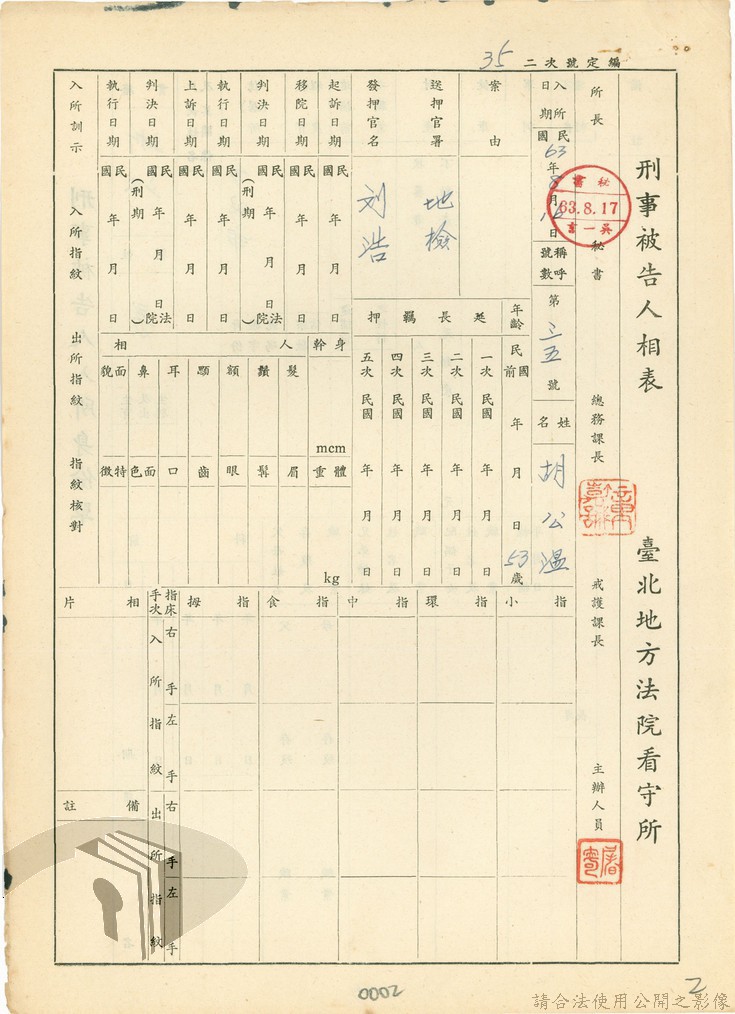 編定號次二 35
刑事被告人相表 臺北地方法院看守所
所長 秘書 總務課長 戒護課長 主辦人員
秘書
63.8.17
吳一言
入所日期 民國63年8月日 稱呼號數 第三五號 姓名 胡公溫
年齡 民國前 年 月 日 53歲
案由
送押官署 地檢
發押官名 刘浩
延長羈押
一次 民國 年 月 日
二次 民國 年 月 日
三次 民國 年 月 日
四次 民國 年 月 日
五次 民國 年 月 日
起訴日期 民國 年 月 日
移院日期 民國 年 月 日
判決日期 民國 年 月 日 (刑期 法院)
執行日期 民國 年 月 日
上訴日期 民國 年 月 日
判決日期 民國 年 月 日 (刑期 法院)
執行日期 民國 年 月 日
人相
身幹 mcm
體重 kg
髮 鬚 額 顋 耳 鼻 面貌
眉 髯 眼 齒 口 面色 特徵
入所訓示 入所指紋 出所指紋 指紋核對
相片
備註
指床手次 拇指 食指 中指 環指 小指
入所指紋 右手 左手
出所指紋 右手 左手
0002
2
請合法使用公開之影像